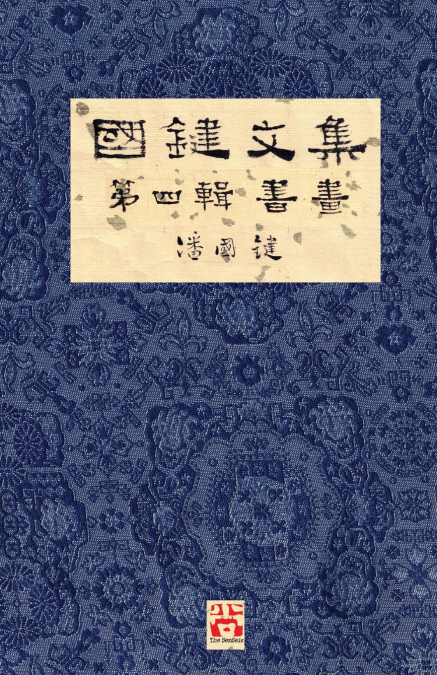 國鍵文集
第四輯 書畫
潘國鍵
尚
The Senseis